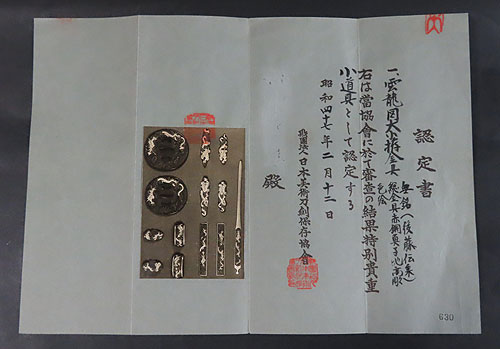 認定書
一、雲龍図大小揃金具
無銘(後藤伝来)
総金具赤銅魚子地高彫
色絵
右は当協會に於て審査の結果特別貴重
小道具として認定する
昭和四十七年二月十二日
財團法人日本美術刀剣保存協會
殿
630